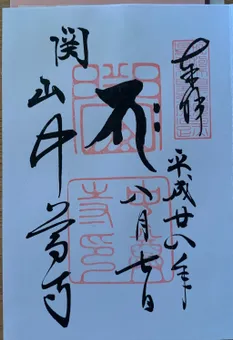 奉拝
平成廿八年
八月七日
関山中尊寺